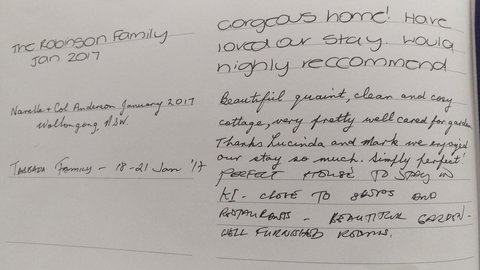 The Robinson Family
Jan 2017
Gorgeous home! Have
loved our stay. Would
highly reccommend
Narelle + Col Anderson January 2017
Wollongong, NSW.
Beautiful quaint, clean and cosy
cottage, very pretty well cared for garden
Thanks Lucinda and Mark we enjoyed
our stay so much. Simply perfect!
Family - 18-21 Jan '17
PERFECT HOUSE TO STAY IN
KI - CLOSE TO SHOPS AND
RESTAURANTS - BEAUTIFUL GARDEN -
WELL FURNISHED ROOMS.